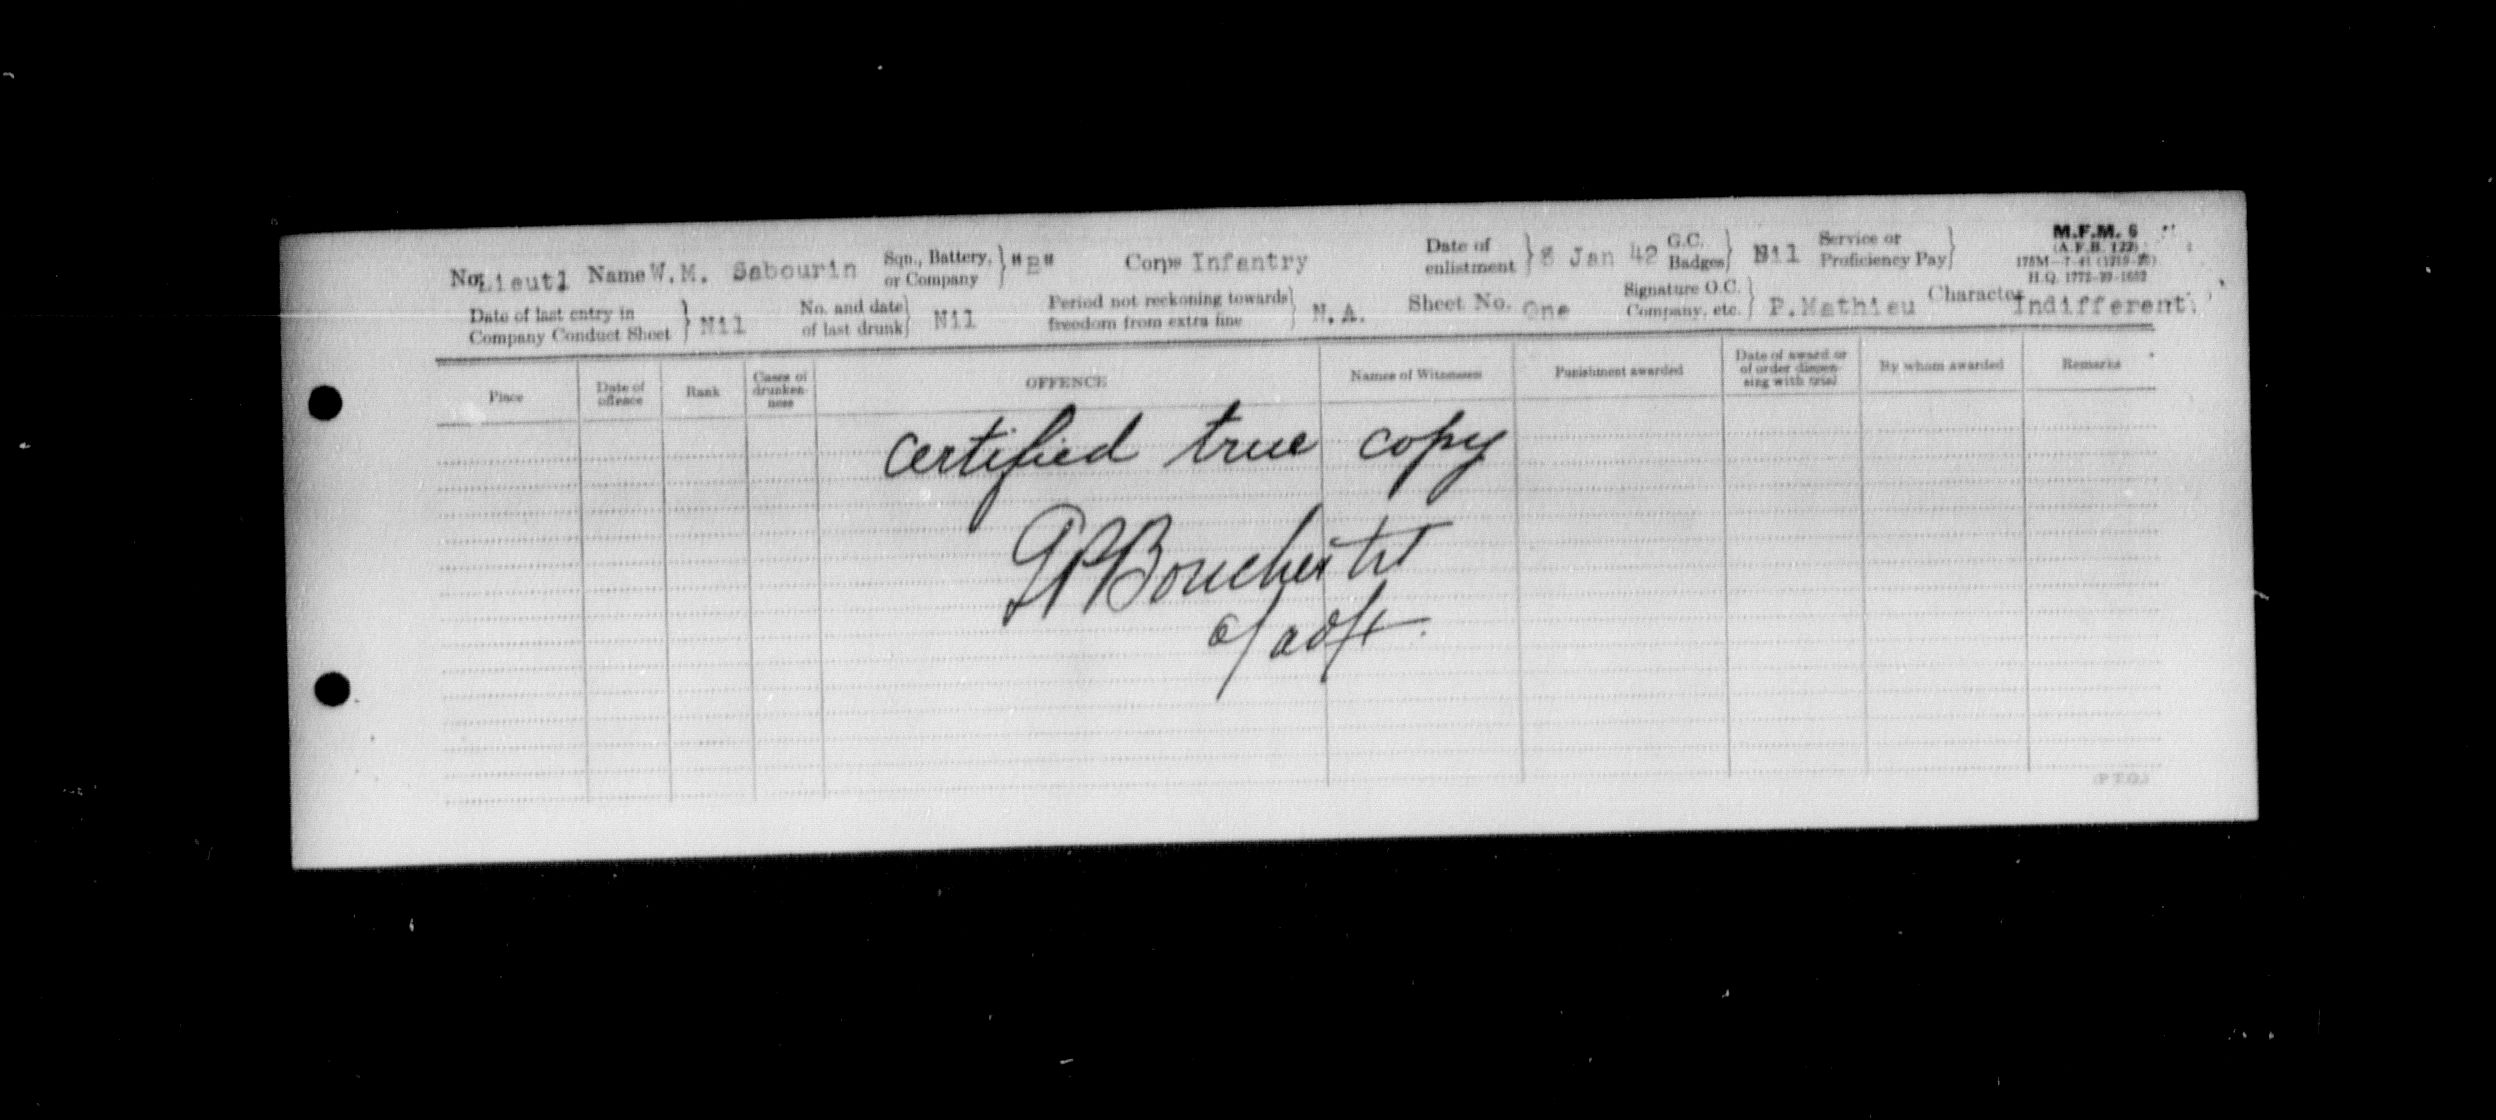 No. Lieut1 Name W.M. Sabourin Sqn., Battery, or Company } "B" Corps Infantry Date of enlistment } 8 Jan 42 G.C. Badges } Nil Service or Proficiency Pay } M.F.M. 6
(A.F.B. 122)
H.Q. 1772-39-1692
Date of last entry in Company Conduct Sheet } Nil No. and date of last drunk } Nil Period not reckoning towards freedom from extra fine } N.A. Sheet No. One Signature O.C. Company, etc. } P.Mathieu Character Indifferent.
Place Date of offence Rank Cases of drunkenness OFFENCE Names of Witnesses Punishment awarded Date of award or of order dispensing with trial By whom awarded Remarks
certified true copy
GPBoucher
(P.T.O.)